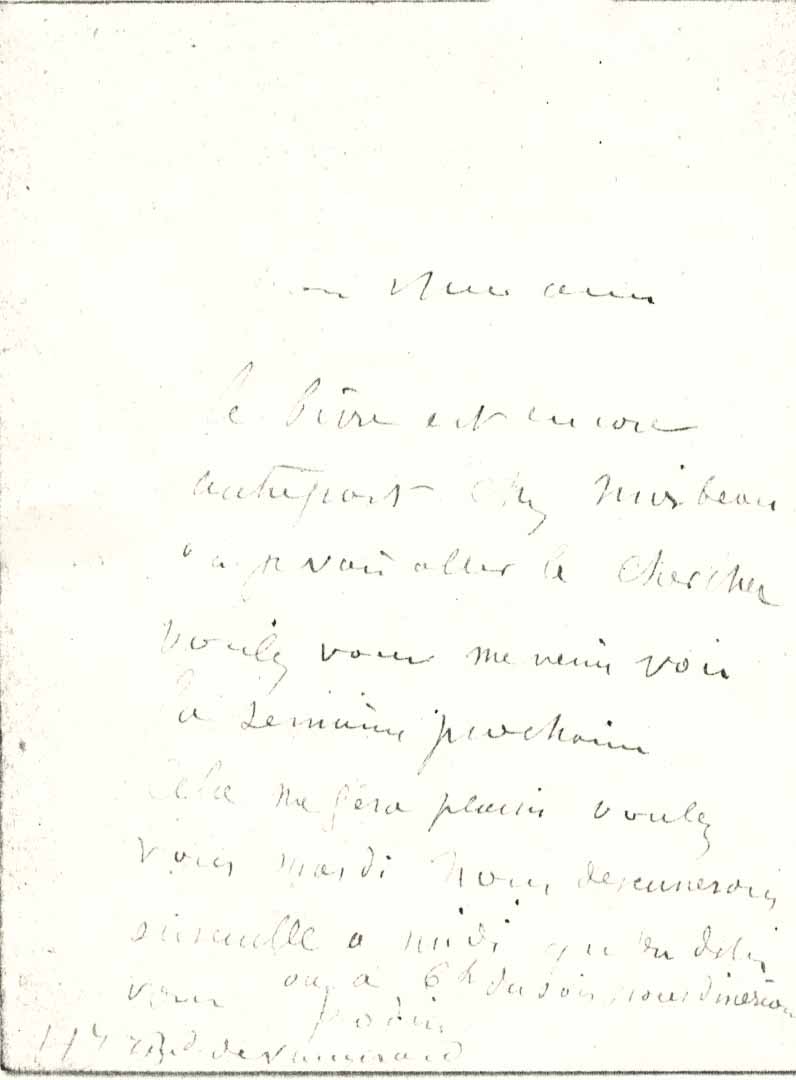 mon cher ami
le livre est encore
autrepart chez Mirbeau
ou je vais aller le chercher
voulez vous me venir voir
la semaine prochaine
Cela me fera plaisir voulez
vous mardi nous dejeunerons
ensemble a midi qu'en dites
ou a 6h du soir nous dinerions
vous
Rodin
117 Bd de Vaugirard